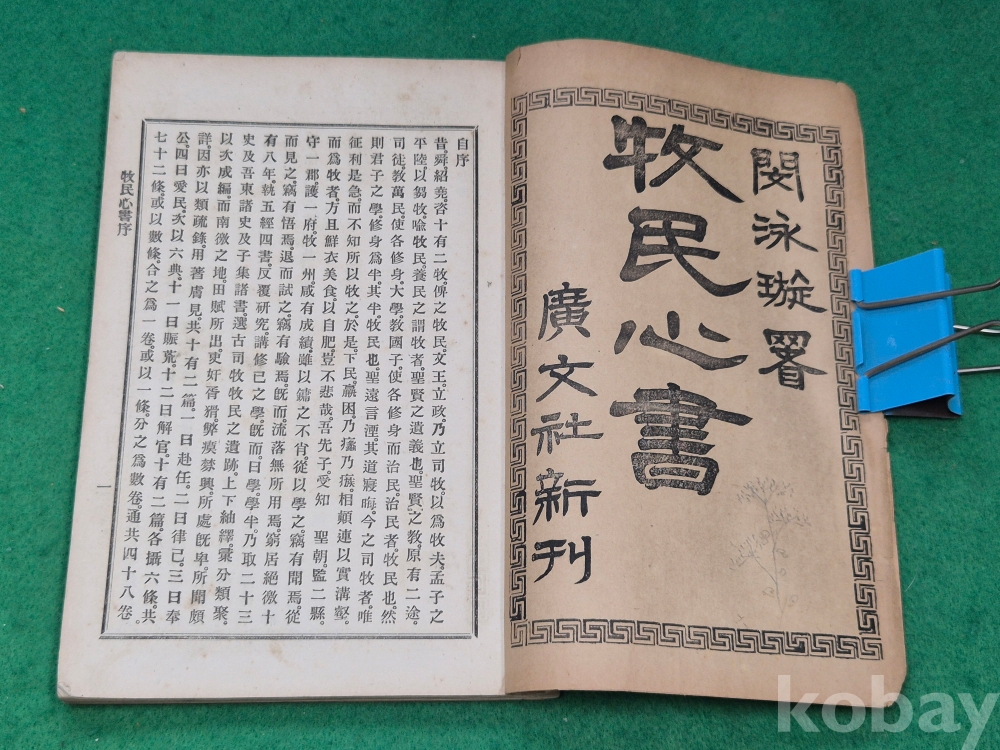 閔泳璇署
牧民心書
廣文社新刊
自序
昔舜紹堯。咨十有二牧。俾之牧民。文王立政。乃立司牧。以爲牧夫。孟子之
平陸。以芻牧喩牧民。養民之謂牧者。聖賢之遺義也。聖賢之敎。原有二途。
司徒。敎萬民。使各修身。大學。敎國子。使各修身而治民。治民者。牧民也。然
則君子之學。修身爲半。其半牧民也。聖遠言湮。其道寢晦。今之司牧者。唯
征利是急。而不知所以牧之。於是。下民羸困。乃瘰乃瘯。相顚連以實溝壑。
而爲牧者。方且鮮衣美食以自肥。豈不悲哉。吾先子。受知 聖朝。監二縣。
守一郡。護一府。牧一州。咸有成績。雖以鏞之不肖。從以學之。竊有聞焉。從
而見之。竊有悟焉。退而試之。竊有驗焉。旣而流落無所用焉。窮居絕徼十
有八年。執五經四書。反覆硏究。講修己之學。旣而曰。學學半。乃取二十三
史及吾東諸史及子集諸書。選古司牧牧民之遺跡。上下紬繹。彙分類聚。
以次成編。而南徼之地。田賦所出。吏奸胥猾。弊瘼棼興。所處旣卑。所聞頗
詳。因亦以類疏錄。用著膚見。共十有二篇。一曰赴任。二曰律己。三曰奉
公。四曰愛民。次以六典。十一曰賑荒。十二曰解官。十有二篇。各攝六條。共
七十二條。或以數條。合之爲一卷。或以一條。分之爲數卷。通共四十八卷。
牧民心書序
一
kobay